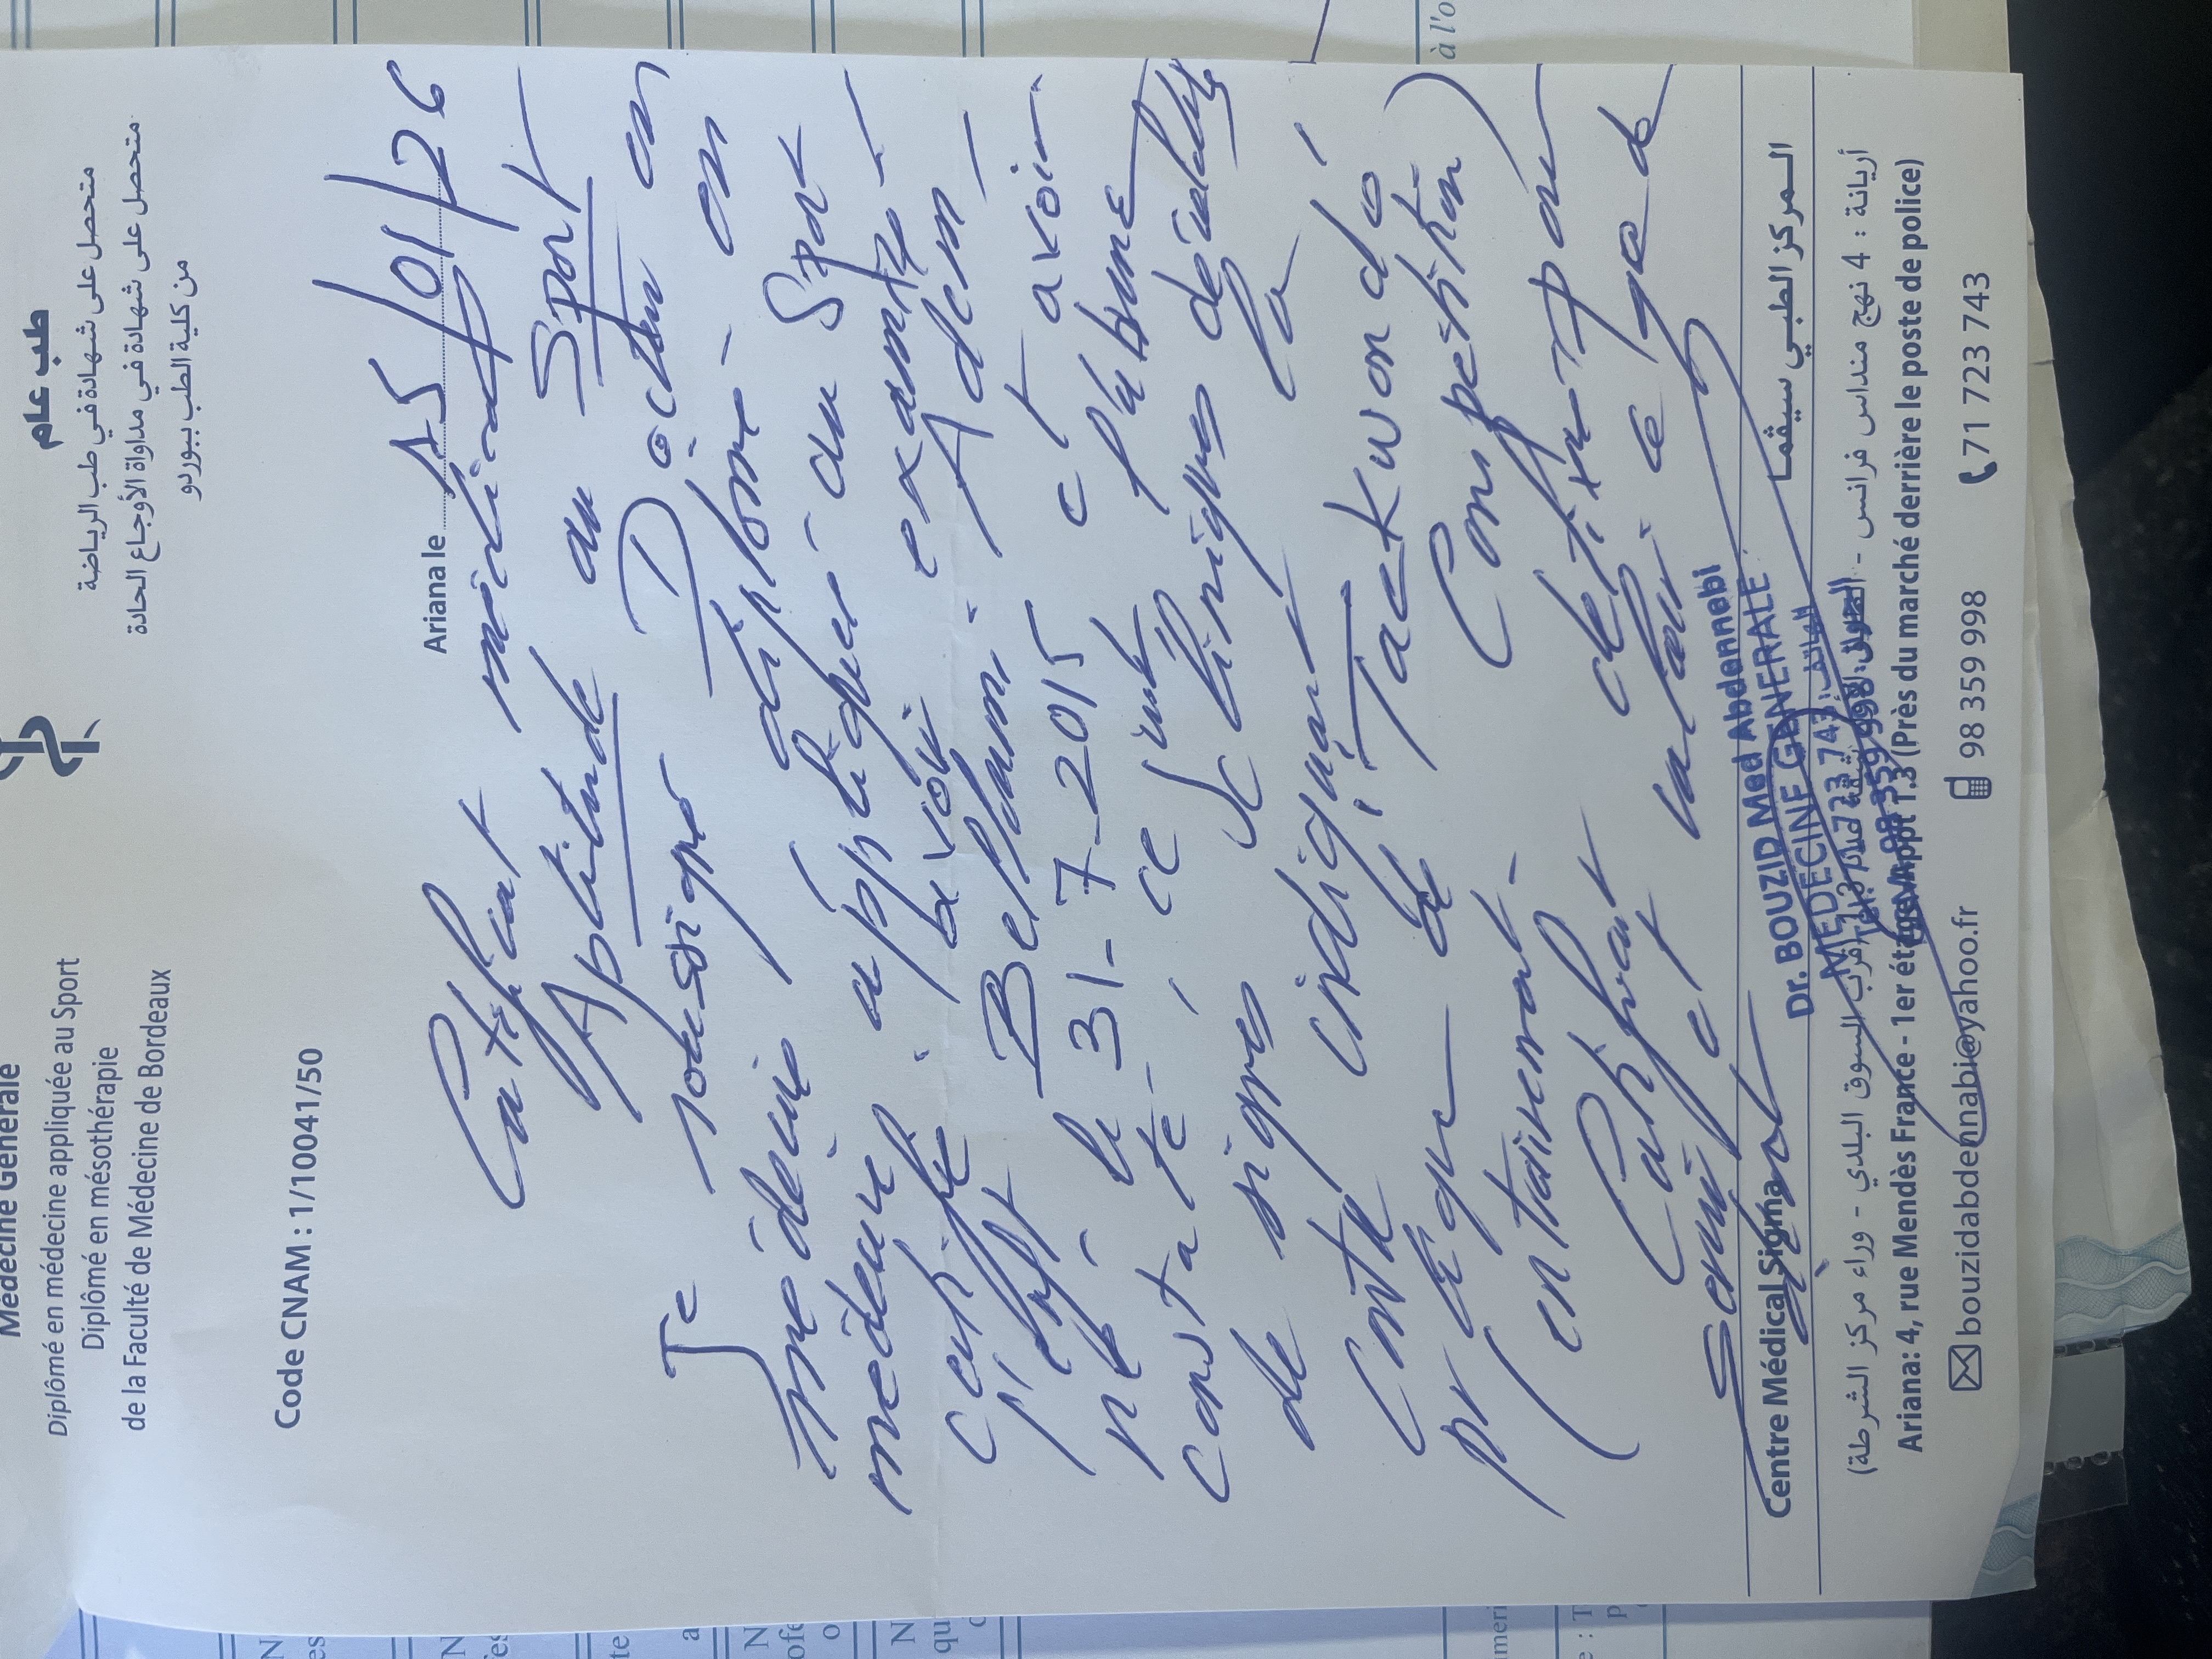 Médecine Générale
Diplômé en médecine appliquée au Sport
Diplômé en mésothérapie
de la Faculté de Médecine de Bordeaux
طب عام
متحصل على شهادة في طب الرياضة
متحصل على شهادة في مداواة الأوجاع الحادة
من كلية الطب ببوردو
Code CNAM : 1/10041/50
Ariana le 15/01/26
Certificat médical
Aptitude au Sport
Je soussigné Docteur en
médecine diplômé en
médecine appliquée au Sport
certifie avoir examiné
l'enfant Adem
né le 31-7-2015 et avoir
constaté ce jour l'absence
de signes cliniques décelables
contre indiquant la
pratique de Taekwondo
(entraînement Compétition)
Certificat
servir et valoir ce que de
droit
Dr. BOUZID Med Abdennebi
MEDECINE GENERALE
Centre Médical Sigma
المركز الطبي سيڤما
أريانة : 4 نهج منداس فرانس - الطابق الأول
Ariana: 4, rue Mendès France - 1er étage Appt 1.3 (Près du marché derrière le poste de police)
bouzidabdennabi@yahoo.fr 98 359 998 71 723 743
à l'o